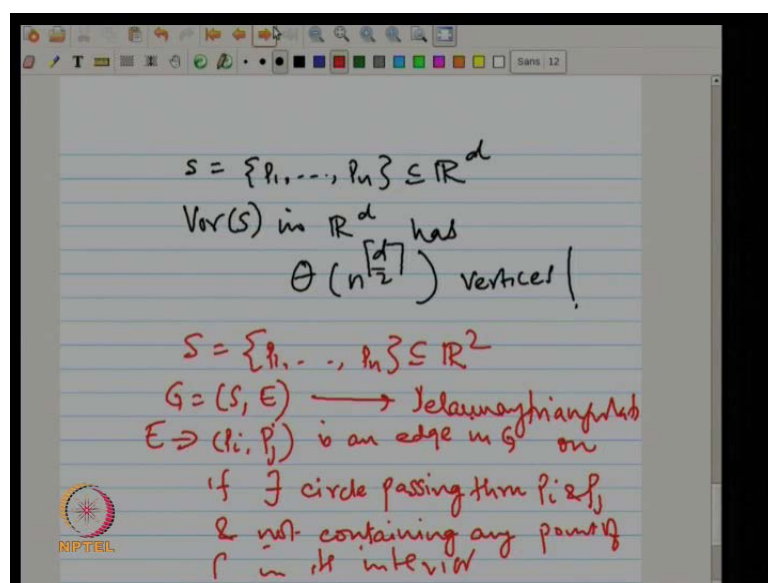 Sans 12
S = {p₁, ..., pₙ} ⊆ ℝᵈ
Vor(S) in ℝᵈ has
θ (n^⌈d/2⌉) vertices
S = {p₁, . . , pₙ} ⊆ ℝ²
G = (S, E) ⟶ Delaunay triangulati
E ⇒ (pᵢ, pⱼ) is an edge in G on
if ∃ circle passing thru pᵢ & pⱼ
& not containing any point of
S in its interior
NPTEL